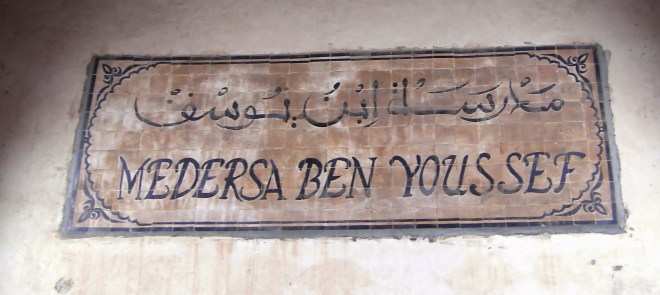 مَدْرَسَـة اِبْنُ يُوسْفْ
MEDERSA BEN YOUSSEF